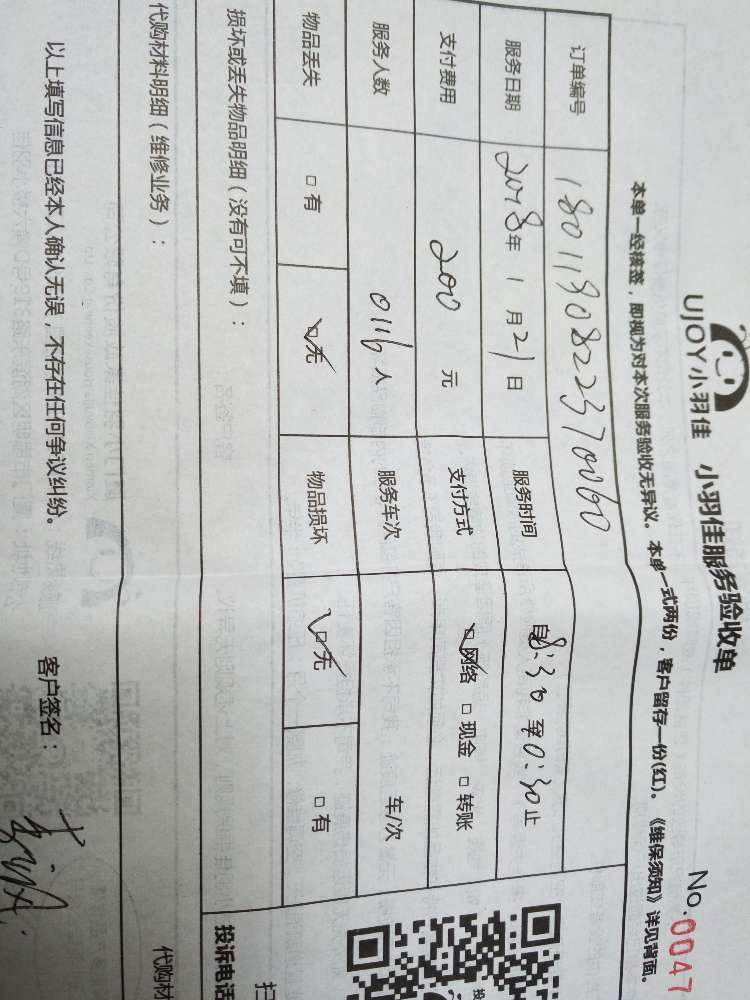 UJOY小羽佳 小羽佳服务验收单 No.0047
本单一经核签，即视为对本次服务验收无异议。本单一式两份，客户留存一份(红)。《维保须知》详见背面。
订单编号 1801190822370060
服务日期 2018年 1 月 21 日 服务时间 自8:30 至0:30止
支付费用 200 元 支付方式 ☑网络 □现金 □转账
服务人数 人 服务车次 车/次
物品丢失 □有 ☑无 物品损坏 ☑无 □有
损坏或丢失物品明细（没有可不填）：
投诉电话
代购材料明细（维修业务）：
代购材
以上填写信息已经本人确认无误，不存在任何争议纠纷。 客户签名：